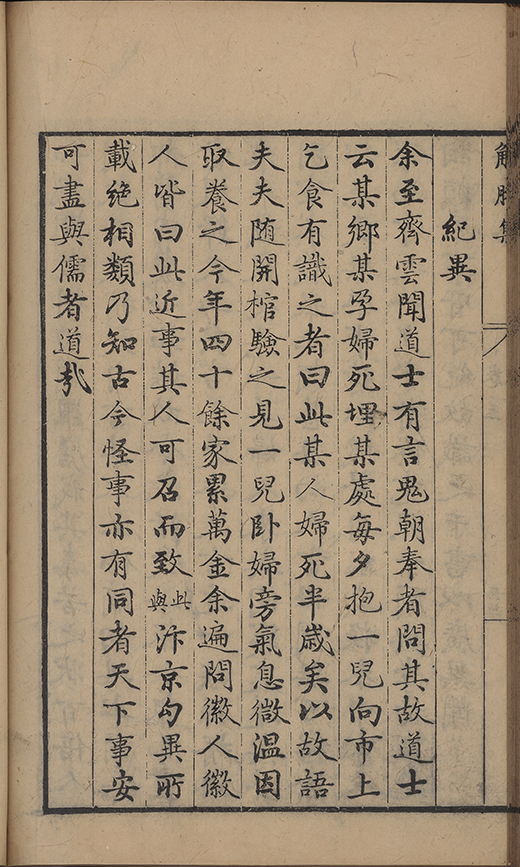 解脫集
紀異
余至齊雲聞道士有言鬼朝奉者問其故道士
云某鄉某孕婦死埋某處每夕抱一兒向市上
乞食有識之者曰此某人婦死半歲矣以故語
夫夫随開棺驗之見一兒卧婦旁氣息微溫因
取養之今年四十餘家累萬金余遍問徽人徽
人皆曰此近事其人可召而致此與汴京勾異所
載絶相類乃知古今怪事亦有同者天下事安
可盡與儒者道哉